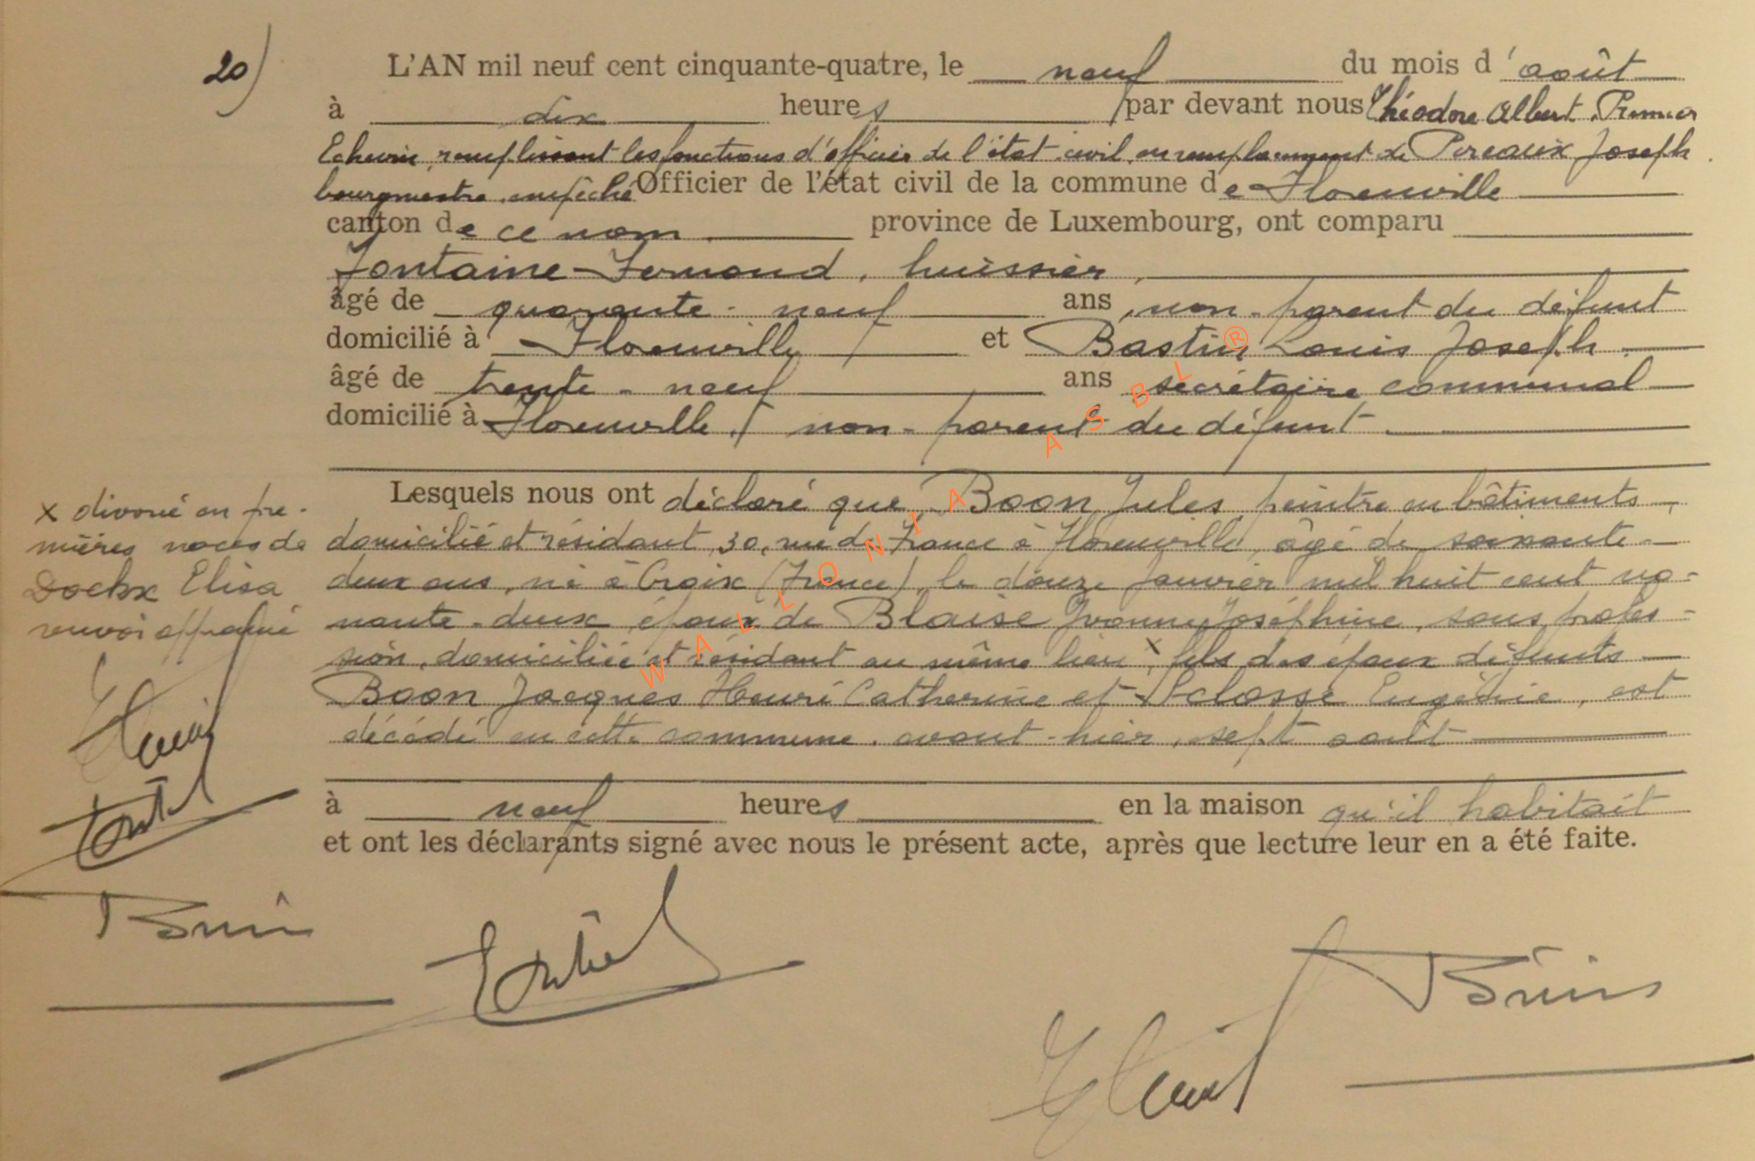 20)
L'AN mil neuf cent cinquante-quatre, le neuf du mois d'août
à dix heures par devant nous Théodore Albert, Premier
Echevin, remplissant les fonctions d'officier de l'état civil en remplacement de Pereaux Joseph
bourgmestre empêché Officier de l'état civil de la commune de Florenville
canton de ce nom province de Luxembourg, ont comparu
Fontaine Fernand, huissier,
âgé de quarante-neuf ans, non-parent du défunt
domicilié à Florenville et Bastin Louis Joseph
âgé de trente-neuf ans secrétaire communal
domicilié à Florenville, non-parent du défunt
Lesquels nous ont déclaré que Boon Jules peintre en bâtiments,
domicilié et résidant, 30, rue de France à Florenville, âgé de soixante-
deux ans, né à Croix (France), le douze janvier mil huit cent no-
nante-deux, époux de Blaise Yvonne Joséphine, sans profes-
sion, domiciliée et résidant au même lieu x, fils des époux défunts
Boon Jacques Henri Catherine et Sclosse Eugénie, est
décédé en cette commune, avant-hier, sept août
à neuf heures en la maison qu'il habitait
et ont les déclarants signé avec nous le présent acte, après que lecture leur en a été faite.
x divorcé en pre-
mières noces de
Dockx Elisa
renvoi approuvé
WALLONIA ASBL ®